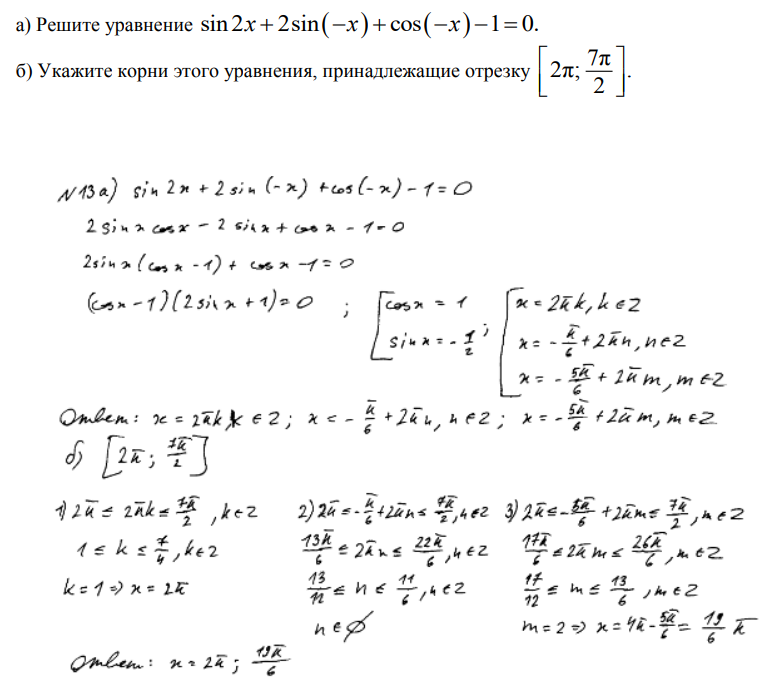 а) Решите уравнение sin 2x + 2sin(−x) + cos(−x) − 1 = 0.
б) Укажите корни этого уравнения, принадлежащие отрезку [2π; 7π/2].
N13 а) sin 2x + 2 sin (-x) + cos (-x) - 1 = 0
2 sin x cos x - 2 sin x + cos x - 1 = 0
2 sin x (cos x - 1) + cos x - 1 = 0
(cos x - 1)(2 sin x + 1) = 0 ; [cos x = 1 sin x = -1/2 ; [x = 2πk, k ∈ Z
x = -π/6 + 2πn, n ∈ Z
x = -5π/6 + 2πm, m ∈ Z
Ответ: x = 2πk, k ∈ Z ; x = -π/6 + 2πn, n ∈ Z ; x = -5π/6 + 2πm, m ∈ Z
б) [2π ; 7π/2]
1) 2π ≤ 2πk ≤ 7π/2, k ∈ Z 2) 2π ≤ -π/6 + 2πn ≤ 7π/2, n ∈ Z 3) 2π ≤ -5π/6 + 2πm ≤ 7π/2, m ∈ Z
1 ≤ k ≤ 7/4, k ∈ Z 13π/6 ≤ 2πn ≤ 22π/6, n ∈ Z 17π/6 ≤ 2πm ≤ 26π/6, m ∈ Z
k = 1 => x = 2π 13/12 ≤ n ≤ 11/6, n ∈ Z 17/12 ≤ m ≤ 13/6, m ∈ Z
n ∈ ∅ m = 2 => x = 4π - 5π/6 = 19/6 π
Ответ: x = 2π ; 19π/6